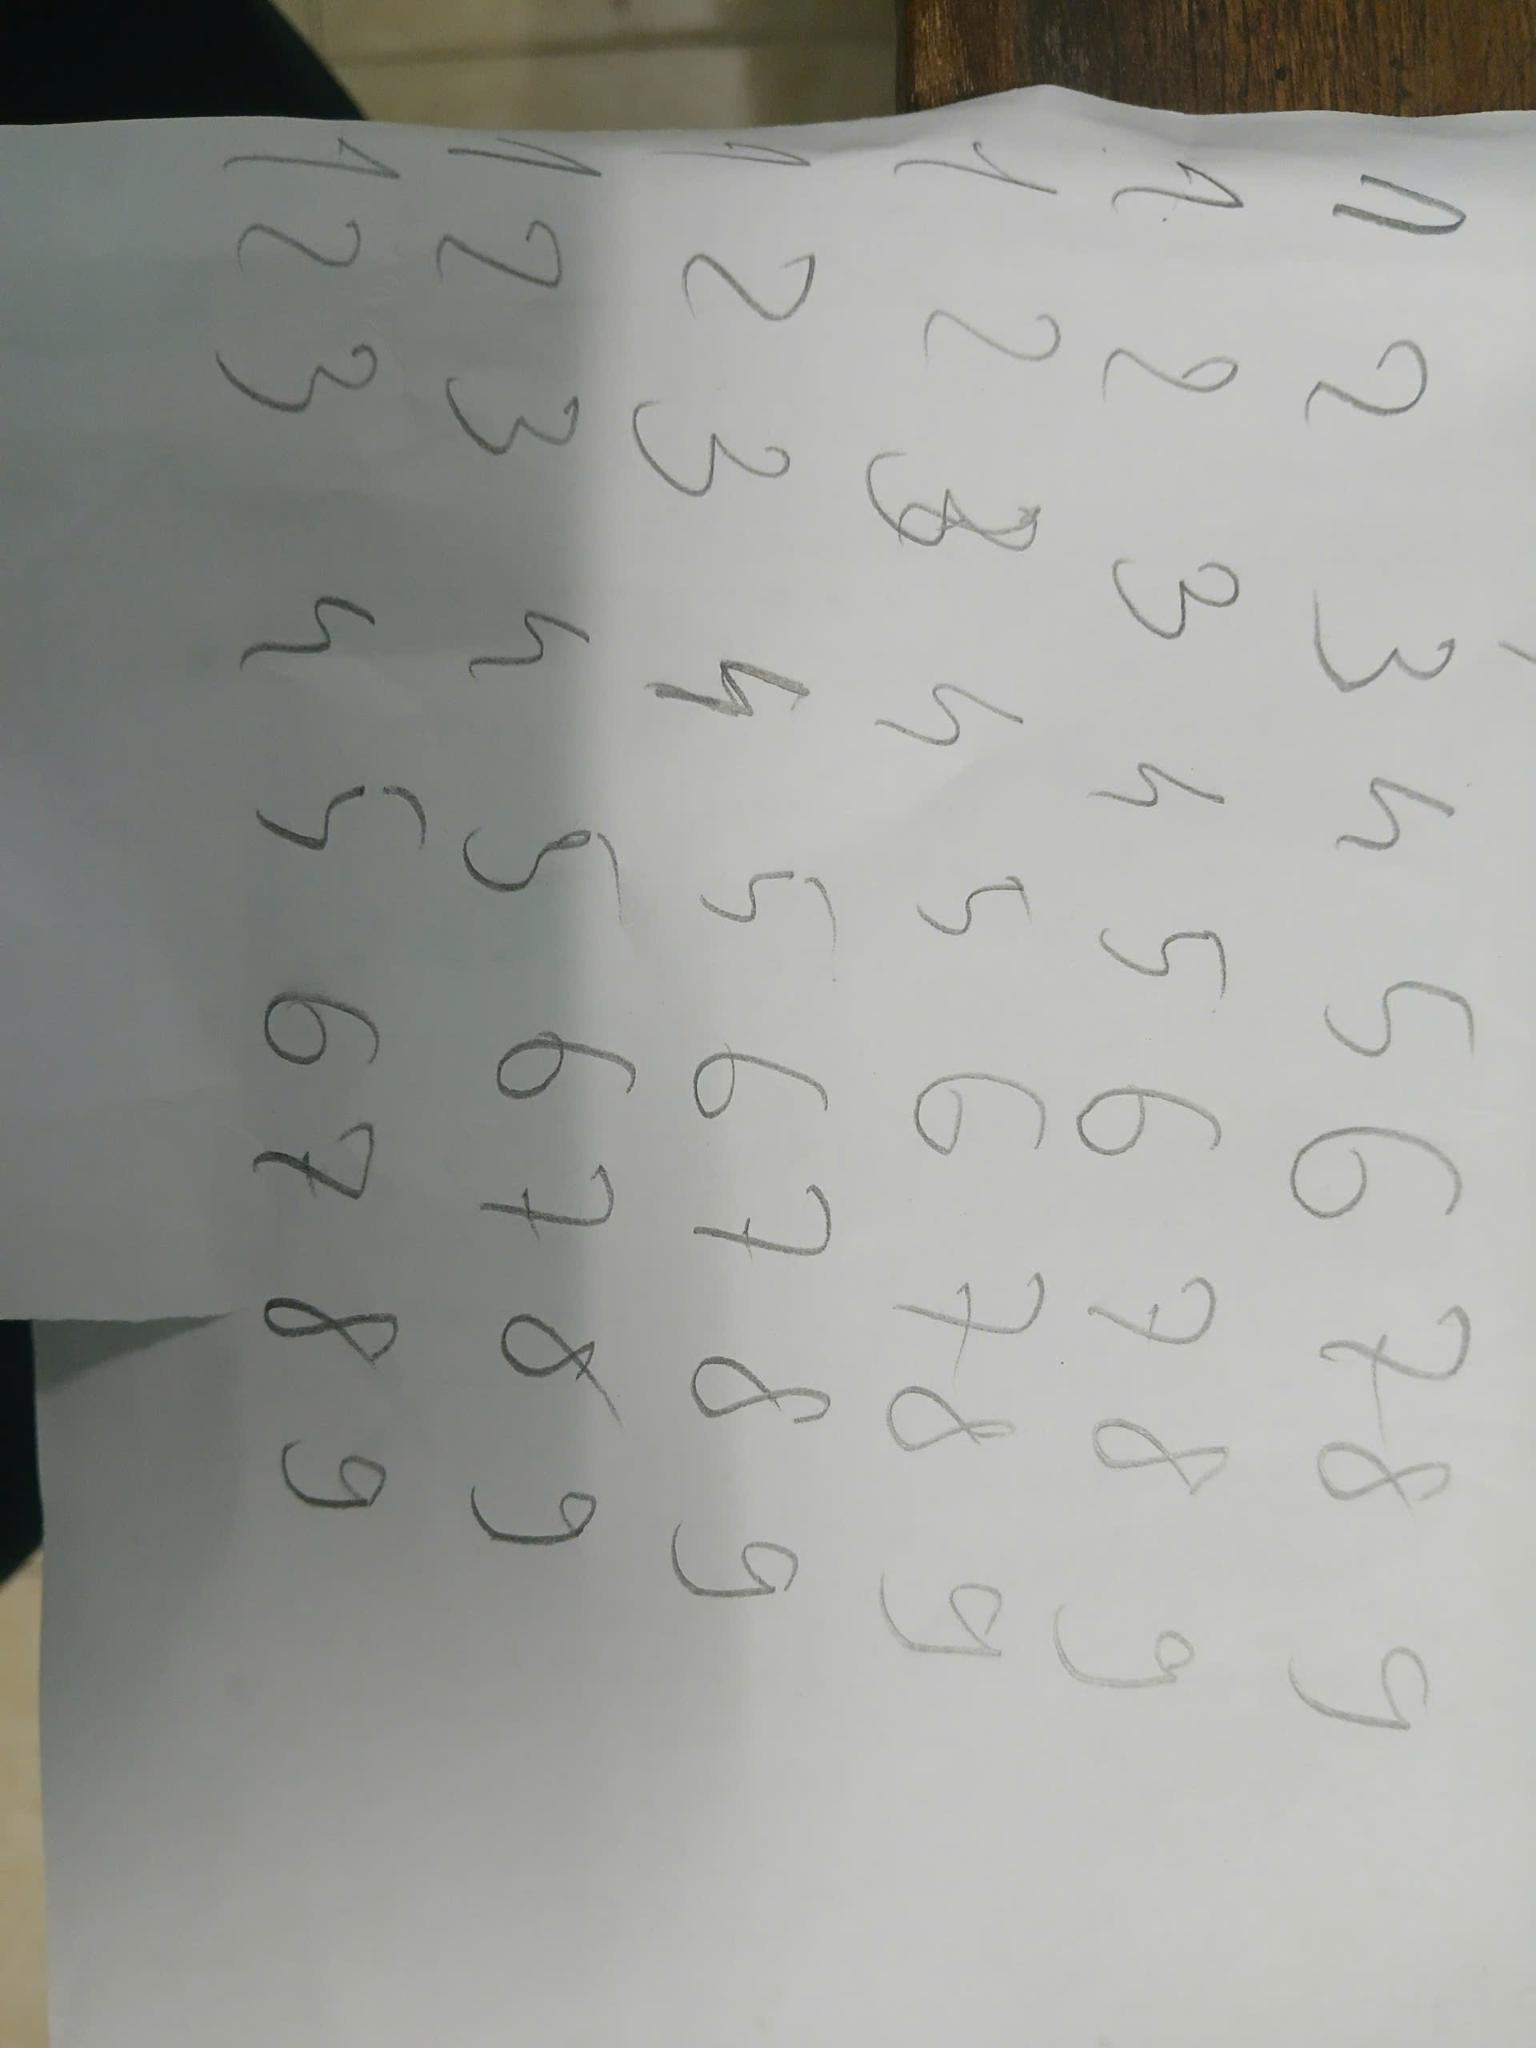 1 2 3 4 5 6 7 8 9
1 2 3 4 5 6 7 8 9
1 2 3 4 5 6 7 8 9
1 2 3 4 5 6 7 8 9
1 2 3 4 5 6 7 8 9
1 2 3 4 5 6 7 8 9